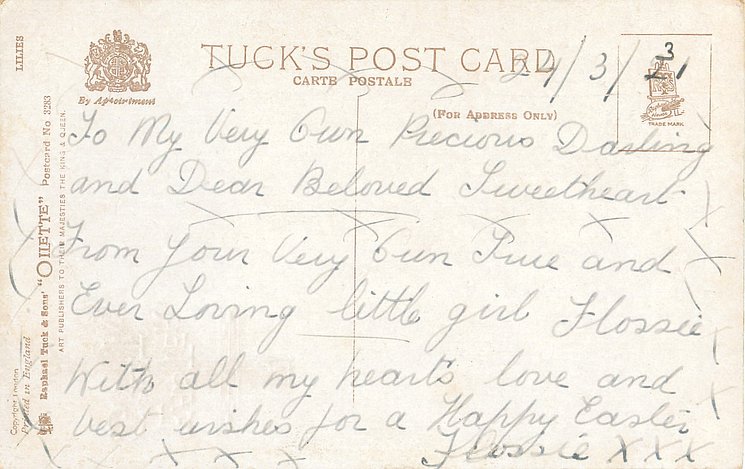 LILIES
By Appointment
TUCK'S POST CARD
CARTE POSTALE
24/3/21
3
TRADE MARK
(FOR ADDRESS ONLY)
Raphael Tuck & Sons' "OILETTE" Postcard No 3283
ART PUBLISHERS TO THEIR MAJESTIES THE KING & QUEEN.
Copyright London
Printed in England
To My Very Own Precious Darling
and Dear Beloved Sweetheart
From Your Very Own True and
Ever Loving little girl Flossie
With all my hearts love and
best wishes for a Happy Easter
Flossie X X X